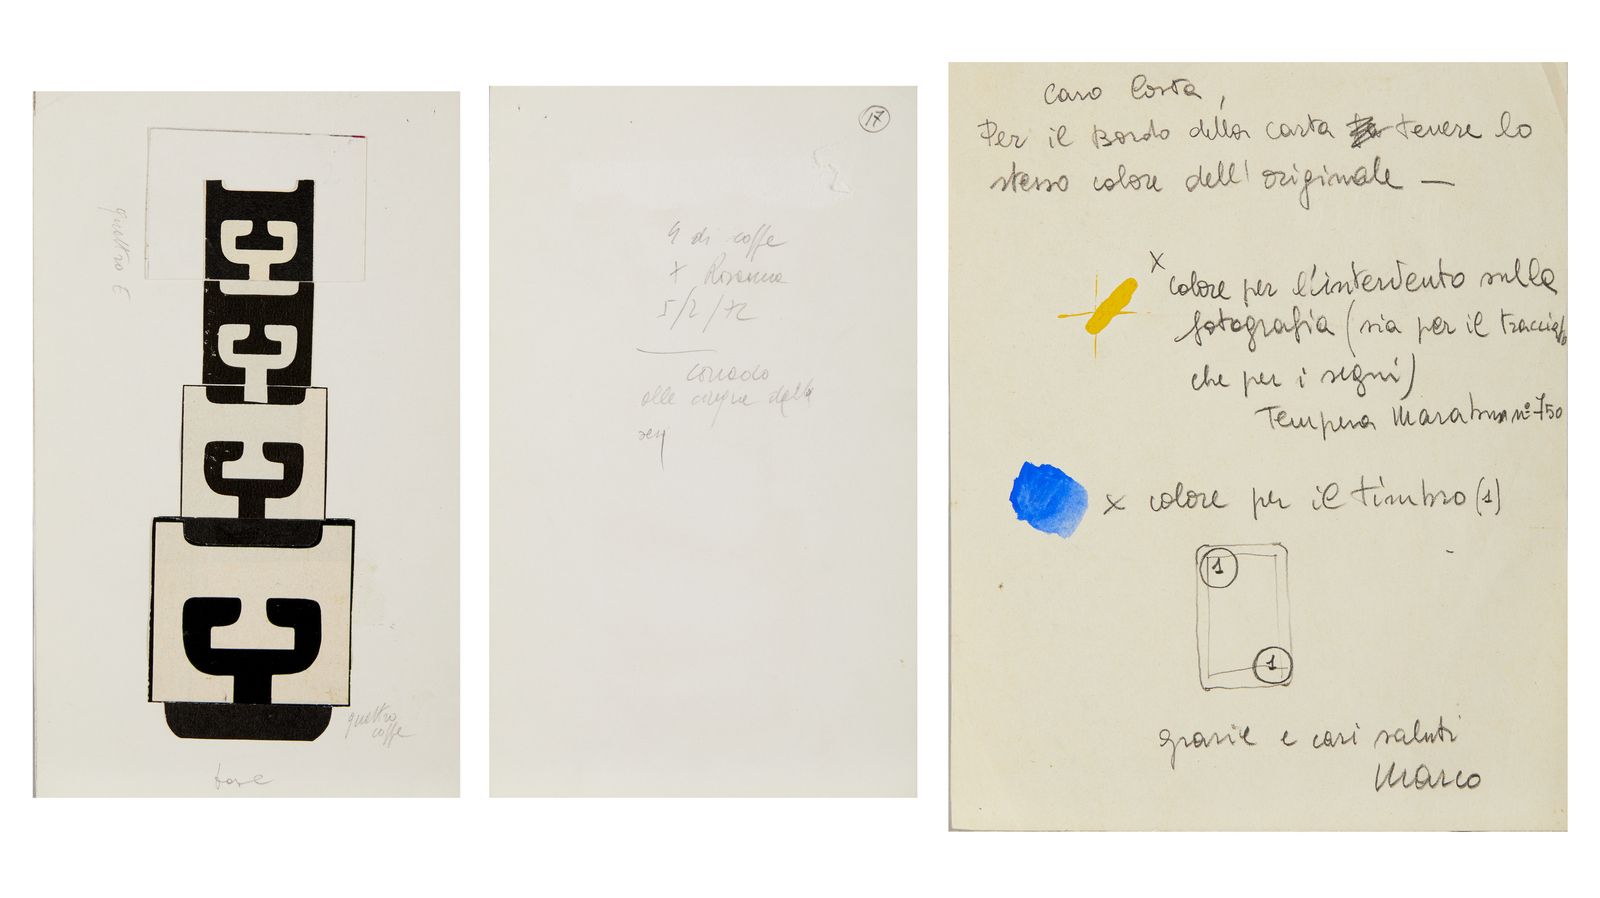 quattro E
quattro
coffe
base
17
4 di coffe
x Rosanna
5/2/72
corrado
alle cinque della
caro Costa,
Per il Bordo della carta tenere lo
stesso colore dell'originale —
x colore per l'intervento sulla
fotografia (sia per il tracciato
che per i segni)
Tempera Marabu n° 750
x colore per il timbro (1)
1
1
grazie e cari saluti
Marco